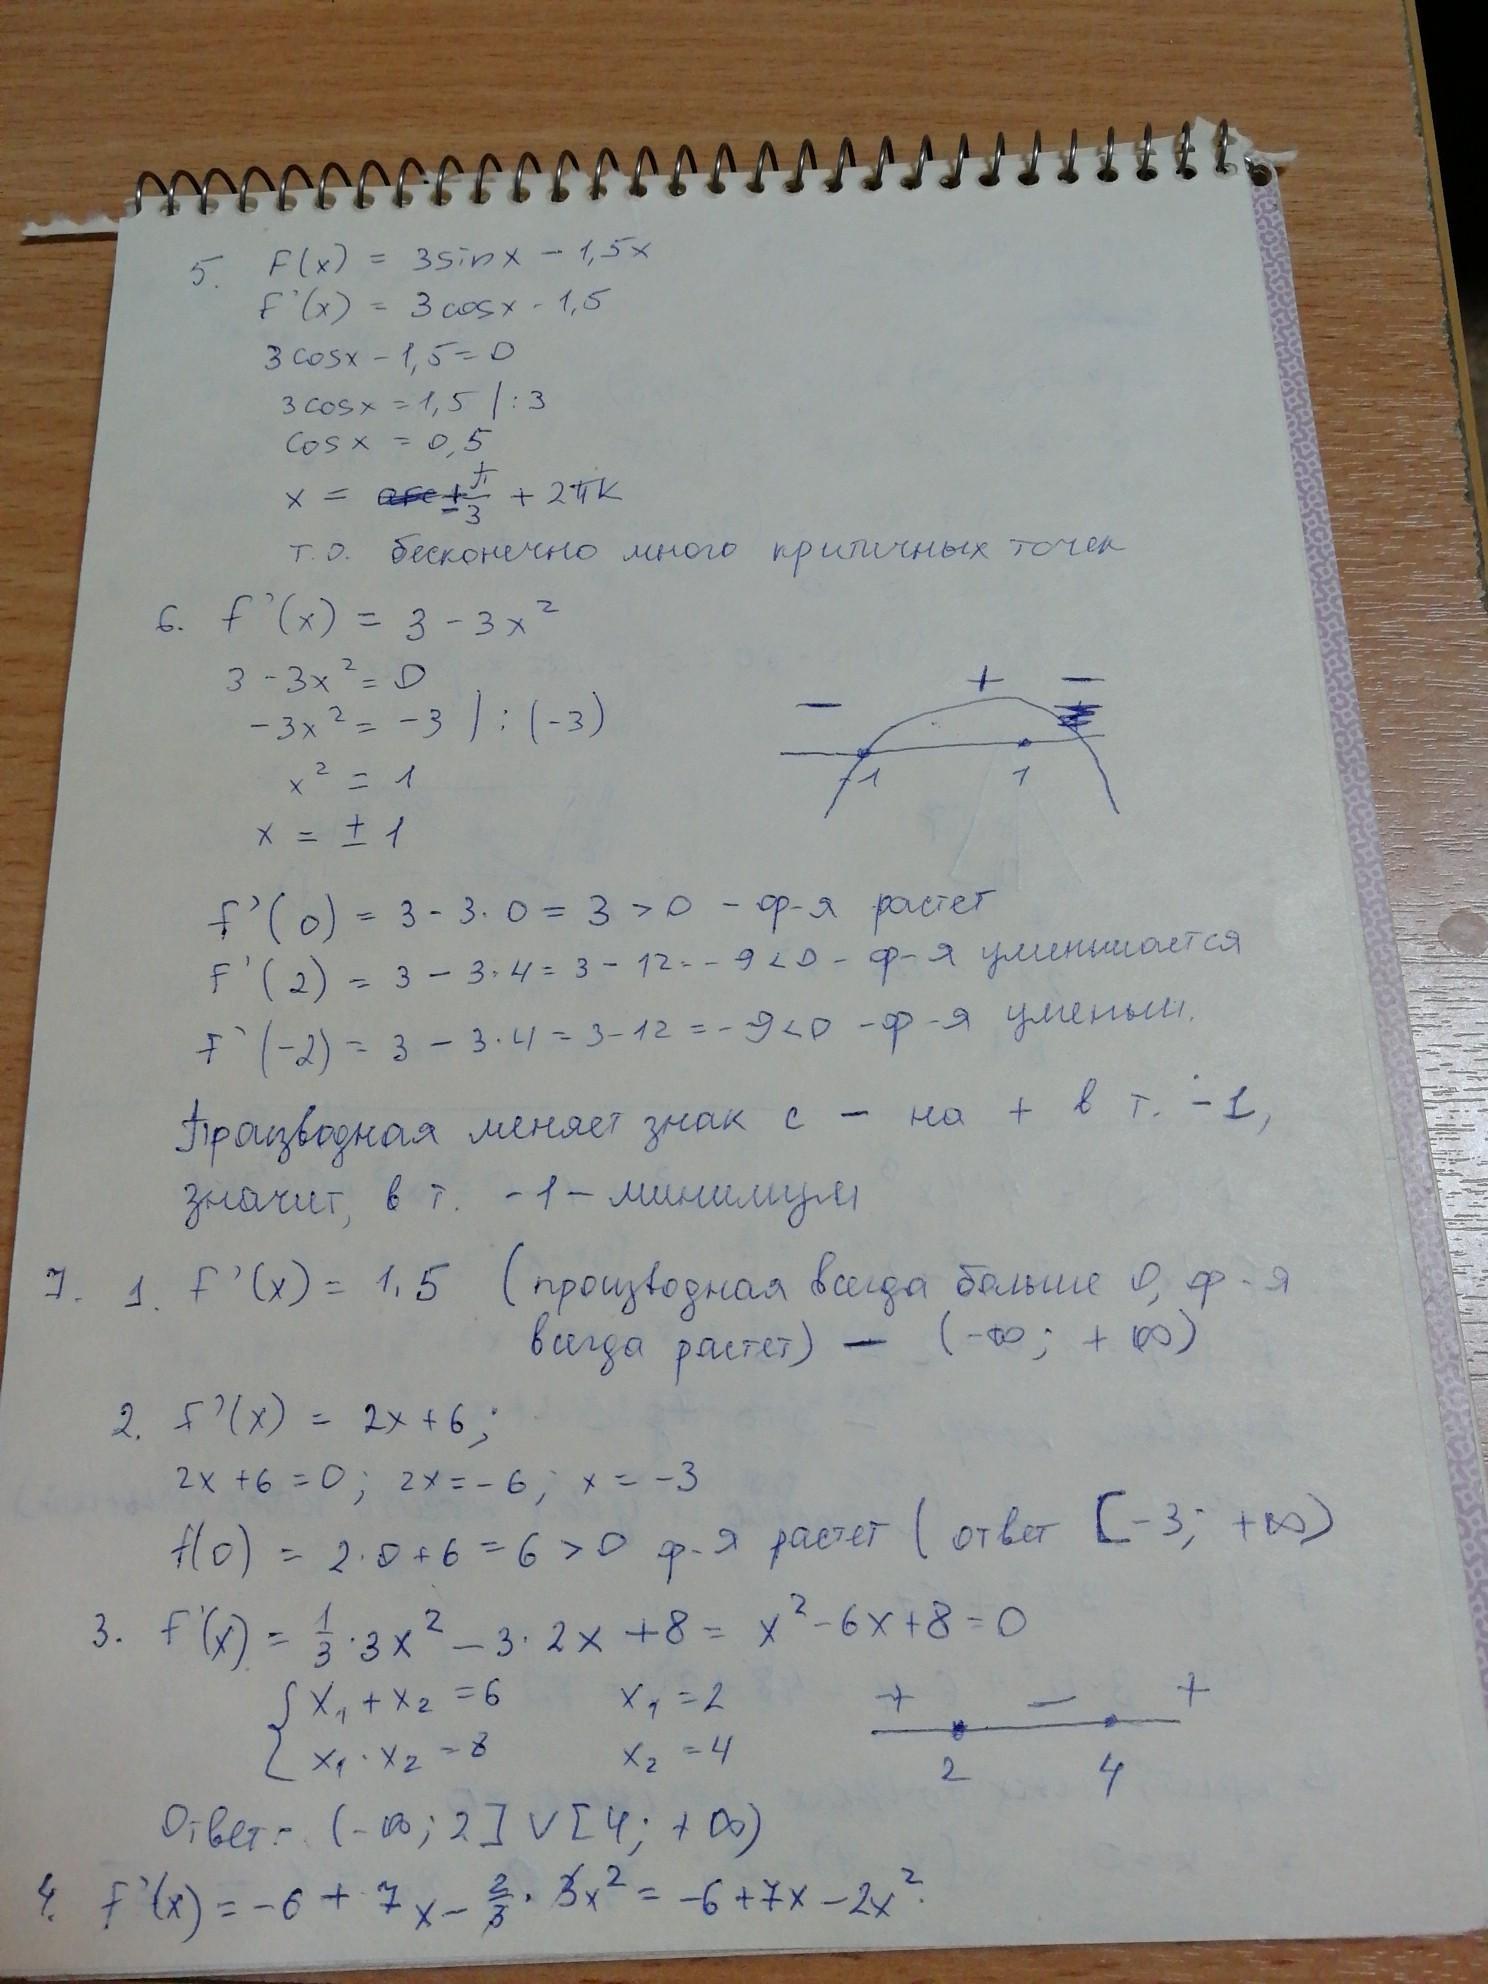 5. f(x) = 3sinx - 1,5x
f'(x) = 3cosx - 1,5
3cosx - 1,5 = 0
3cosx = 1,5 | : 3
cosx = 0,5
x = ± π/3 + 2πk
т.о. бесконечно много критичных точек
6. f'(x) = 3 - 3x²
3 - 3x² = 0
-3x² = -3 | : (-3)
x² = 1
x = ± 1
- + -
-1 1
f'(0) = 3 - 3·0 = 3 > 0 - ф-я растет
f'(2) = 3 - 3·4 = 3 - 12 = -9 < 0 - ф-я уменьшается
f'(-2) = 3 - 3·4 = 3 - 12 = -9 < 0 - ф-я уменьш.
Производная меняет знак с - на + в т. -1,
значит, в т. -1 - минимум
7. 1. f'(x) = 1,5 (производная всегда больше 0, ф-я
всегда растет) - (-∞; +∞)
2. f'(x) = 2x + 6;
2x + 6 = 0; 2x = -6; x = -3
f(0) = 2·0 + 6 = 6 > 0 ф-я растет (ответ [-3; +∞)
3. f'(x) = 1/3 · 3x² - 3·2x + 8 = x² - 6x + 8 = 0
{ x₁ + x₂ = 6 x₁ = 2
x₁ · x₂ = 8 x₂ = 4
+ - +
2 4
Ответ: (-∞; 2] ∨ [4; +∞)
4. f'(x) = -6 + 7x - 2/3 · 3x² = -6 + 7x - 2x²